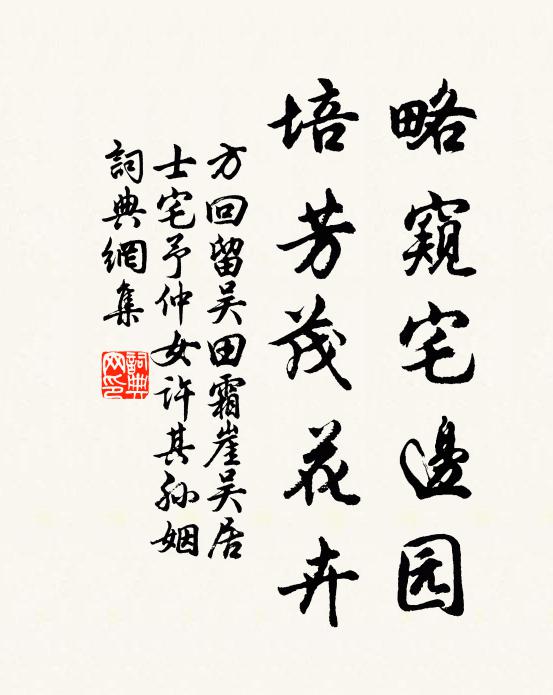 略窥宅邊园
培芳茂花卉
方回留吴田霜崖吴居
士宅予仲女许其孙姻
詞典網集
詞典
网印